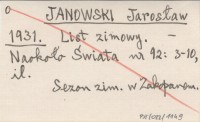 o
JANOWSKI Jarosław
1931. List zimowy. –
Naokoło Świata nr 92: 3-10,
il.
Sezon zim. w Zakopanem.